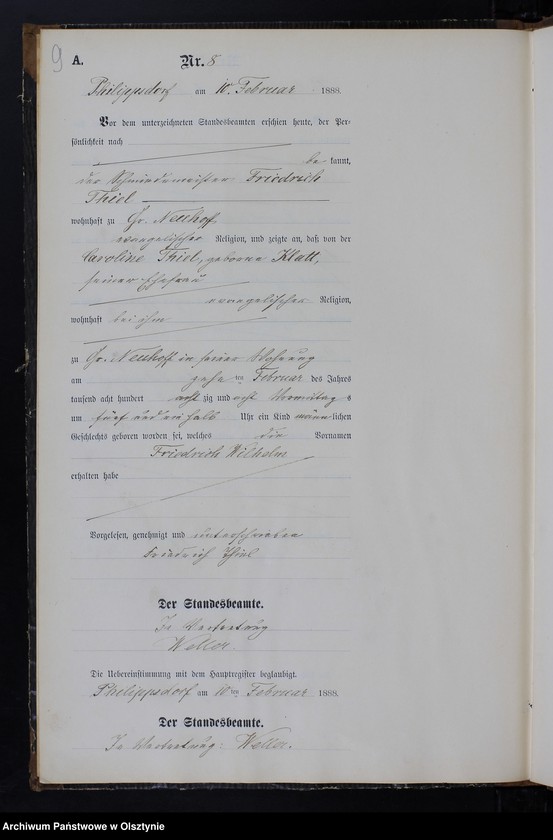 9
A.
Nr. 8
Philippsdorf am 10. Februar 1888.
Vor dem unterzeichneten Standesbeamten erschien heute, der Per-
sönlichkeit nach
be kannt,
der Schmiedemeister Friedrich
Thiel
wohnhaft zu Gr. Neuhoff
evangelischer Religion, und zeigte an, daß von der
Caroline Thiel, geborne Klatt,
seiner Ehefrau
evangelischer Religion,
wohnhaft bei ihm
zu Gr. Neuhoff in seiner Wohnung
am zehn ten Februar des Jahres
tausend acht hundert acht zig und acht Vormittag s
um fünf und ein halb Uhr ein Kind männ lichen
Geschlechts geboren worden sei, welches die Vornamen
Friedrich Wilhelm
erhalten habe
Vorgelesen, genehmigt und unterschrieben
Friedrich Thiel
Der Standesbeamte.
In Vertretung
Weller.
Die Uebereinstimmung mit dem Hauptregister beglaubigt.
Philippsdorf am 10ten Februar 1888.
Der Standesbeamte.
In Vertretung: Weller.
Archiwum Państwowe w Olsztynie